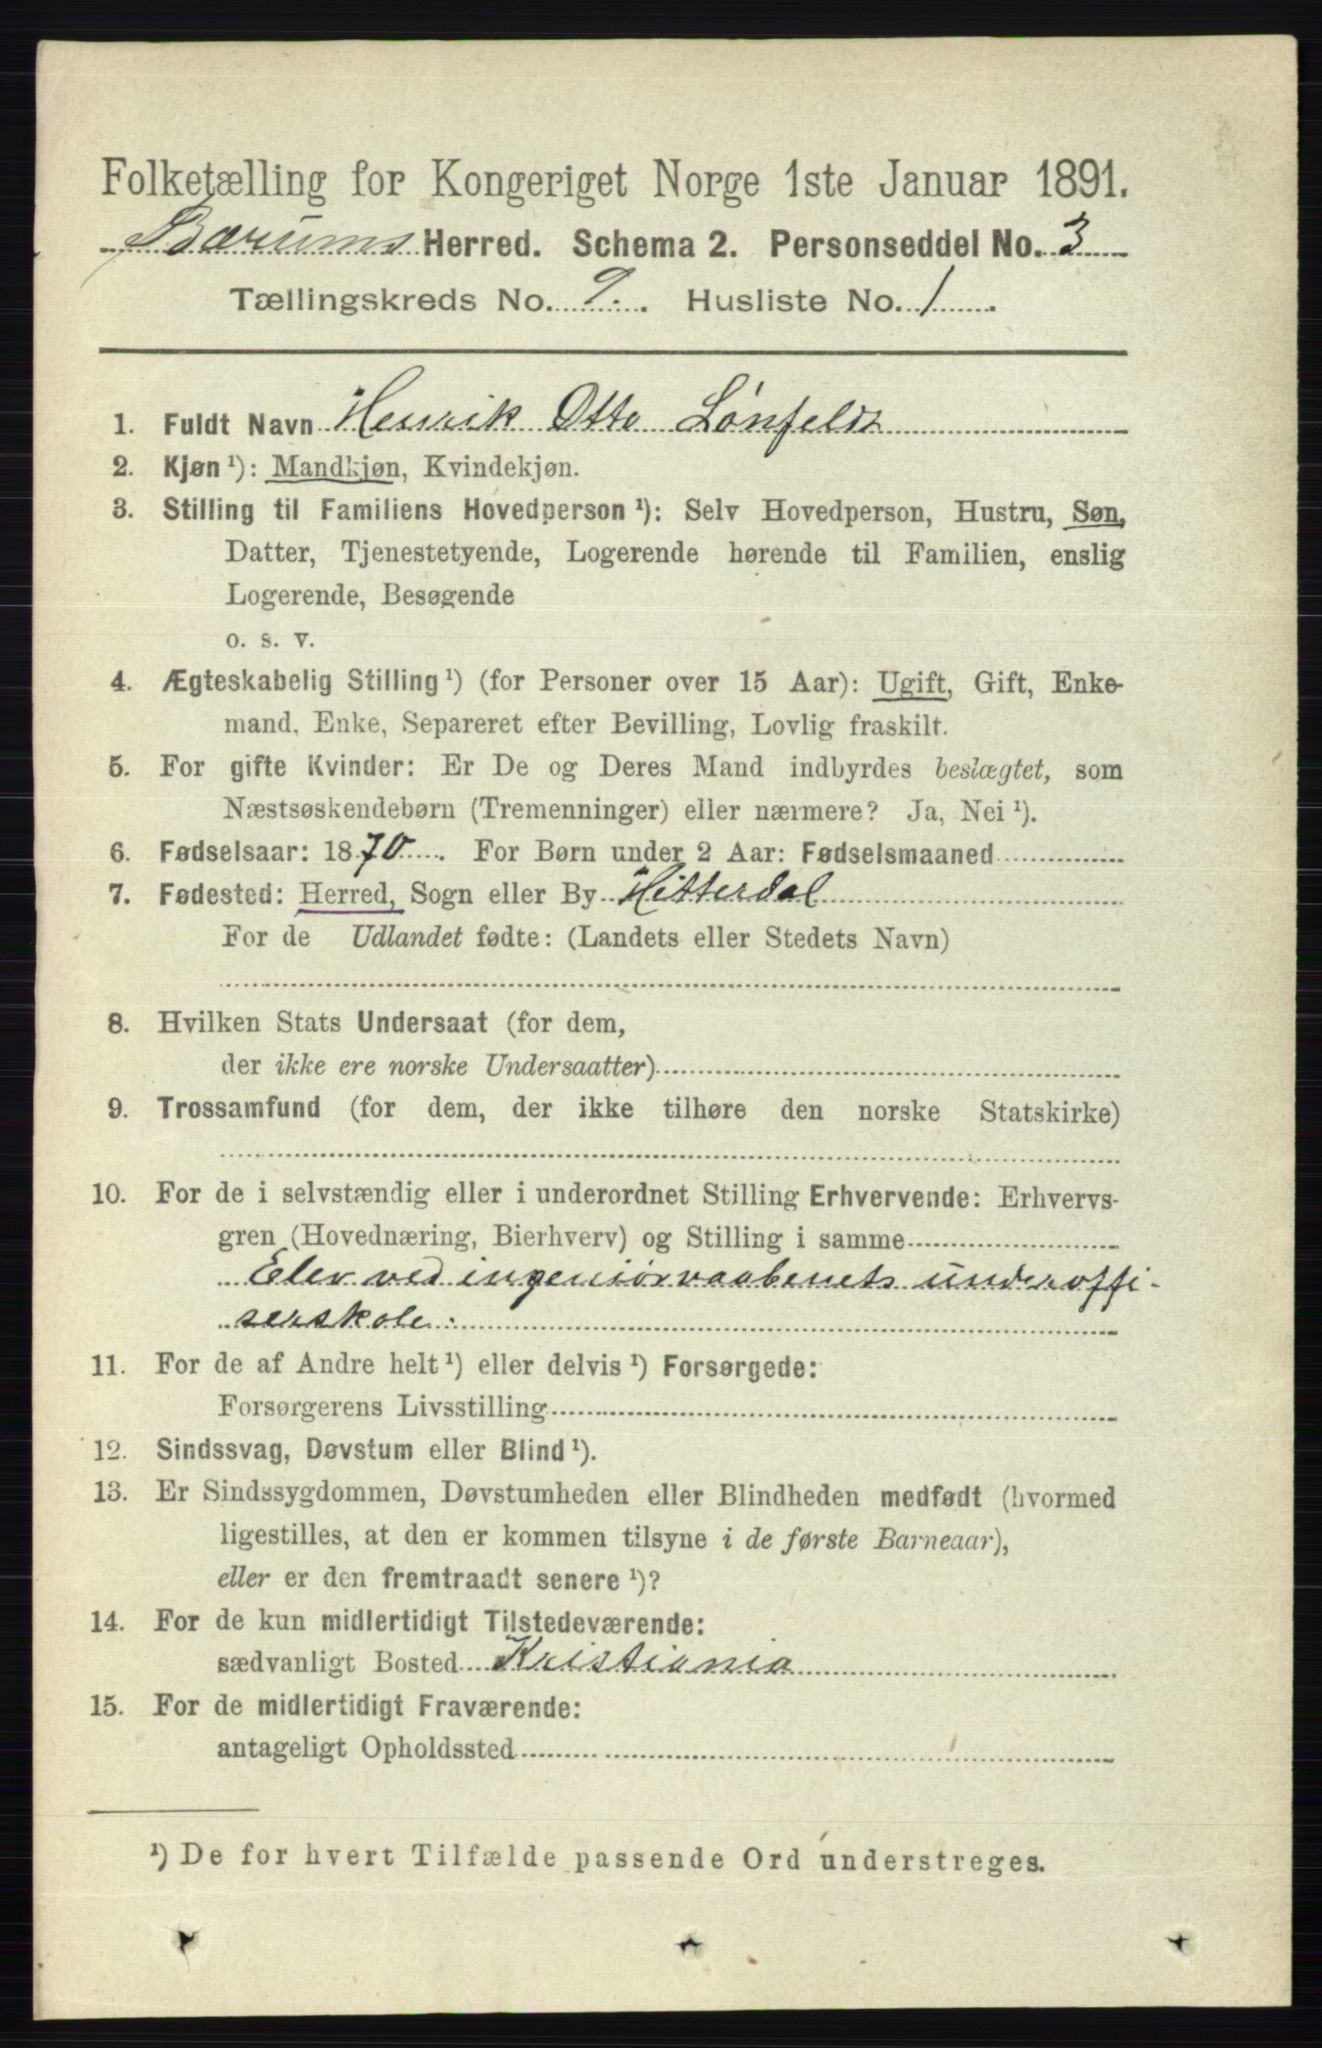 Folketælling for Kongeriget Norge 1ste Januar 1891.
Bærums Herred. Schema 2. Personseddel No. 3
Tællingskreds No. 9. Husliste No. 1
1. Fuldt Navn Henrik Otto Lönfeldt
2. Kjøn ¹): Mandkjøn, Kvindekjøn.
3. Stilling til Familiens Hovedperson ¹): Selv Hovedperson, Hustru, Søn,
Datter, Tjenestetyende, Logerende hørende til Familien, enslig
Logerende, Besøgende
o. s. v.
4. Ægteskabelig Stilling ¹) (for Personer over 15 Aar): Ugift, Gift, Enke-
mand, Enke, Separeret efter Bevilling, Lovlig fraskilt.
5. For gifte Kvinder: Er De og Deres Mand indbyrdes beslægtet, som
Næstsøskendebørn (Tremenninger) eller nærmere? Ja, Nei ¹).
6. Fødselsaar: 1870. For Børn under 2 Aar: Fødselsmaaned
7. Fødested: Herred, Sogn eller By Hitterdal
For de Udlandet fødte: (Landets eller Stedets Navn)
8. Hvilken Stats Undersaat (for dem,
der ikke ere norske Undersaatter)
9. Trossamfund (for dem, der ikke tilhøre den norske Statskirke)
10. For de i selvstændig eller i underordnet Stilling Erhvervende: Erhvervs-
gren (Hovednæring, Bierhverv) og Stilling i samme
Elev ved ingeniörvaabenets underoffi-
serskole.
11. For de af Andre helt ¹) eller delvis ¹) Forsørgede:
Forsørgerens Livsstilling
12. Sindssvag, Døvstum eller Blind ¹).
13. Er Sindssygdommen, Døvstumheden eller Blindheden medfødt (hvormed
ligestilles, at den er kommen tilsyne i de første Barneaar),
eller er den fremtraadt senere ¹)?
14. For de kun midlertidigt Tilstedeværende:
sædvanligt Bosted Kristiania
15. For de midlertidigt Fraværende:
antageligt Opholdssted
¹) De for hvert Tilfælde passende Ord understreges.